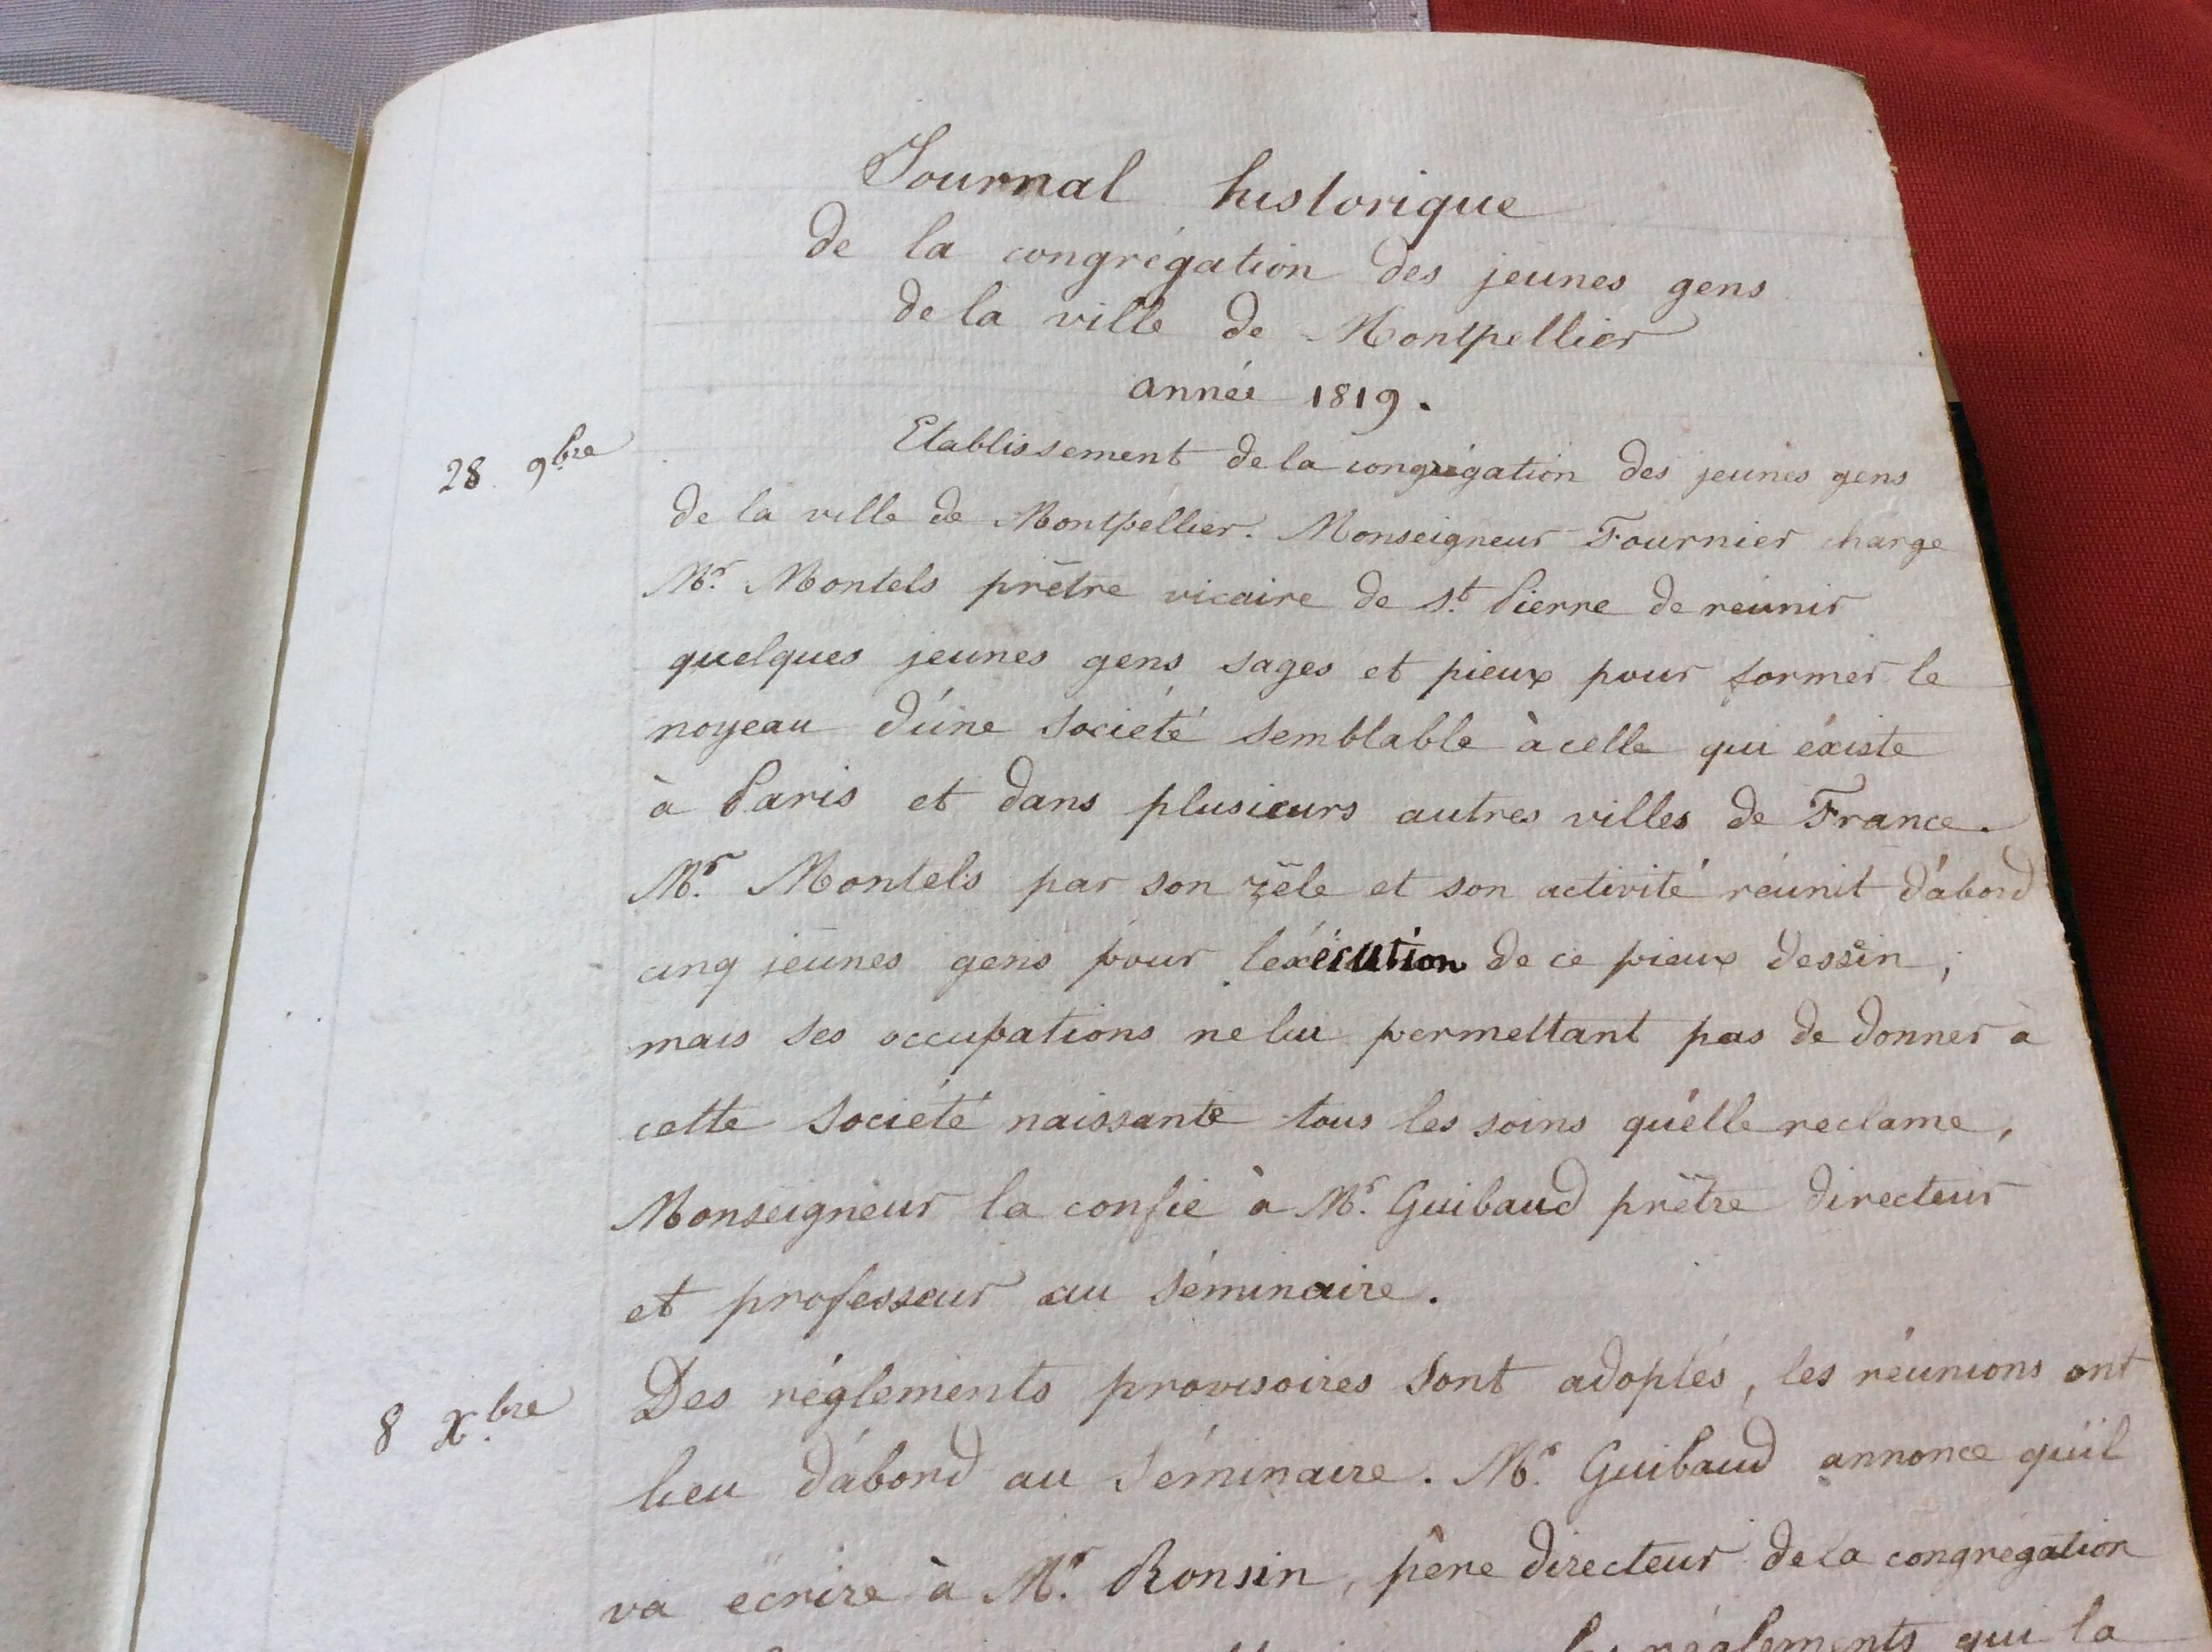 Journal historique
de la congrégation des jeunes gens
de la ville de Montpellier
année 1819.
28 9bre
Etablissement de la congrégation des jeunes gens
de la ville de Montpellier. Monseigneur Fournier charge
Mr. Montels prêtre vicaire de St. Pierre de réunir
quelques jeunes gens sages et pieux pour former le
noyeau d'une société semblable à celle qui éxiste
à Paris et dans plusieurs autres villes de France.
Mr. Montels par son zêle et son activité réunit d'abord
cinq jeunes gens pour l'exécution de ce pieux dessein;
mais ses occupations ne lui permettant pas de donner à
cette société naissante tous les soins qu'elle reclame,
Monseigneur la confie à Mr. Guibaud prêtre directeur
et professeur au séminaire.
8 Xbre
Des réglements provisoires sont adoptés, les réunions ont
lieu d'abord au séminaire. Mr. Guibaud annonce qu'il
va écrire à Mr. Ronsin, père directeur de la congrégation
réglements qui la